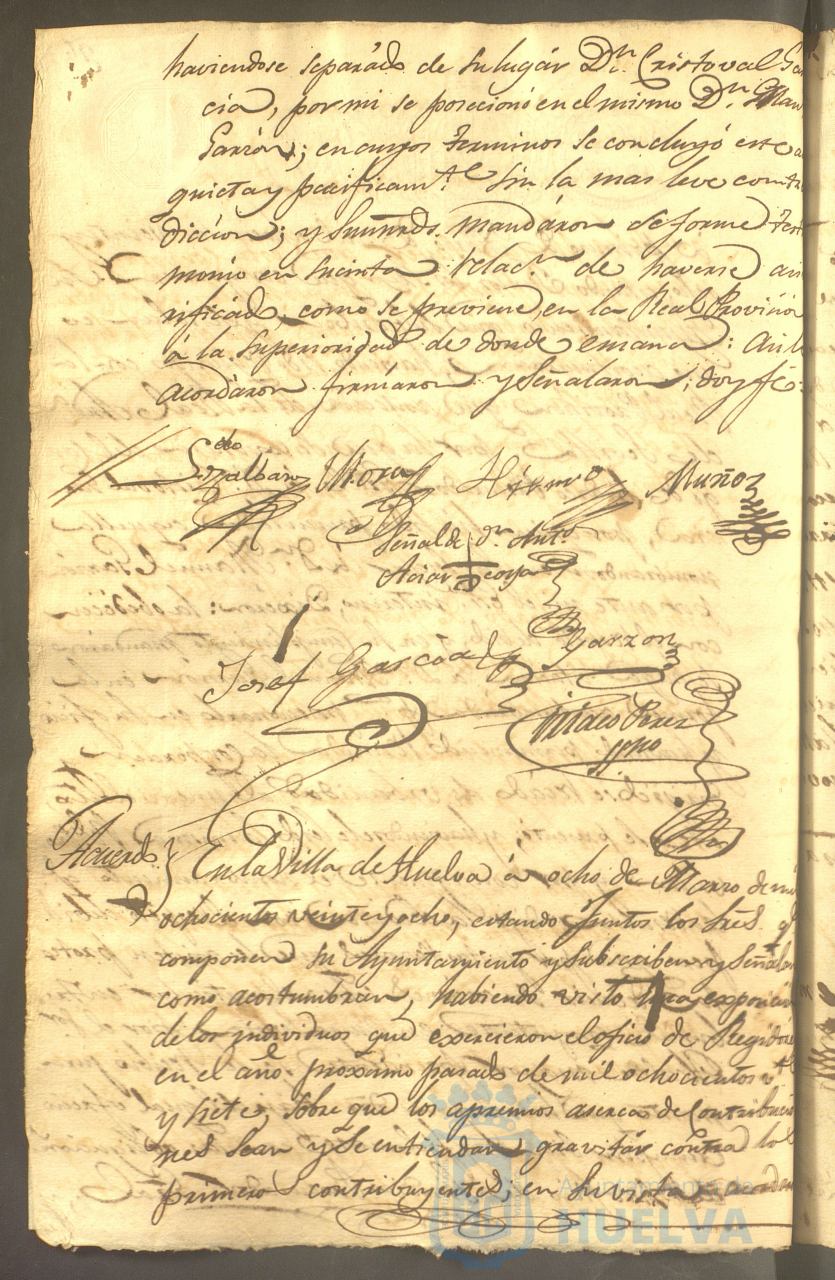 haviendose separádo de su lugár Dn. Cristoval Gar
cia, por mi se posecionó en el mismo Dn. Man
Garzón; en cuyos terminos se concluyó este a
quieta y pacificamte. sin la mas leve contra
diccion; y sus mrds. mandáron se forme testi
monio en sucinta relacn. de haverse asi
rificádo, como se previene, en la Real Provisio
á la Superioridad de donde emana: asi lo
acordáron firmáron y señalaron; doy fé.
Mora Muñoz
Señal de dn. Anto.
Josef Garcia Garzon
Acuerdo
En la Villa de Huelva á ocho de Marzo de mil
ochocientos veinte y ocho, estando juntos los Sres. q
componen su Ayuntamiento y subscriben y señalan
como acostumbran, habiendo visto una exposicion
de los individuos que exercieron el oficio de Regidores
en el año proximo pasado de mil ochocientos vte
y siete, sobre que los apremios aserca de Contribucio
nes sean y se entiendan gravitár contra los
primeros contribuyentes; en su vista acordaron
Ayuntamiento de
HUELVA